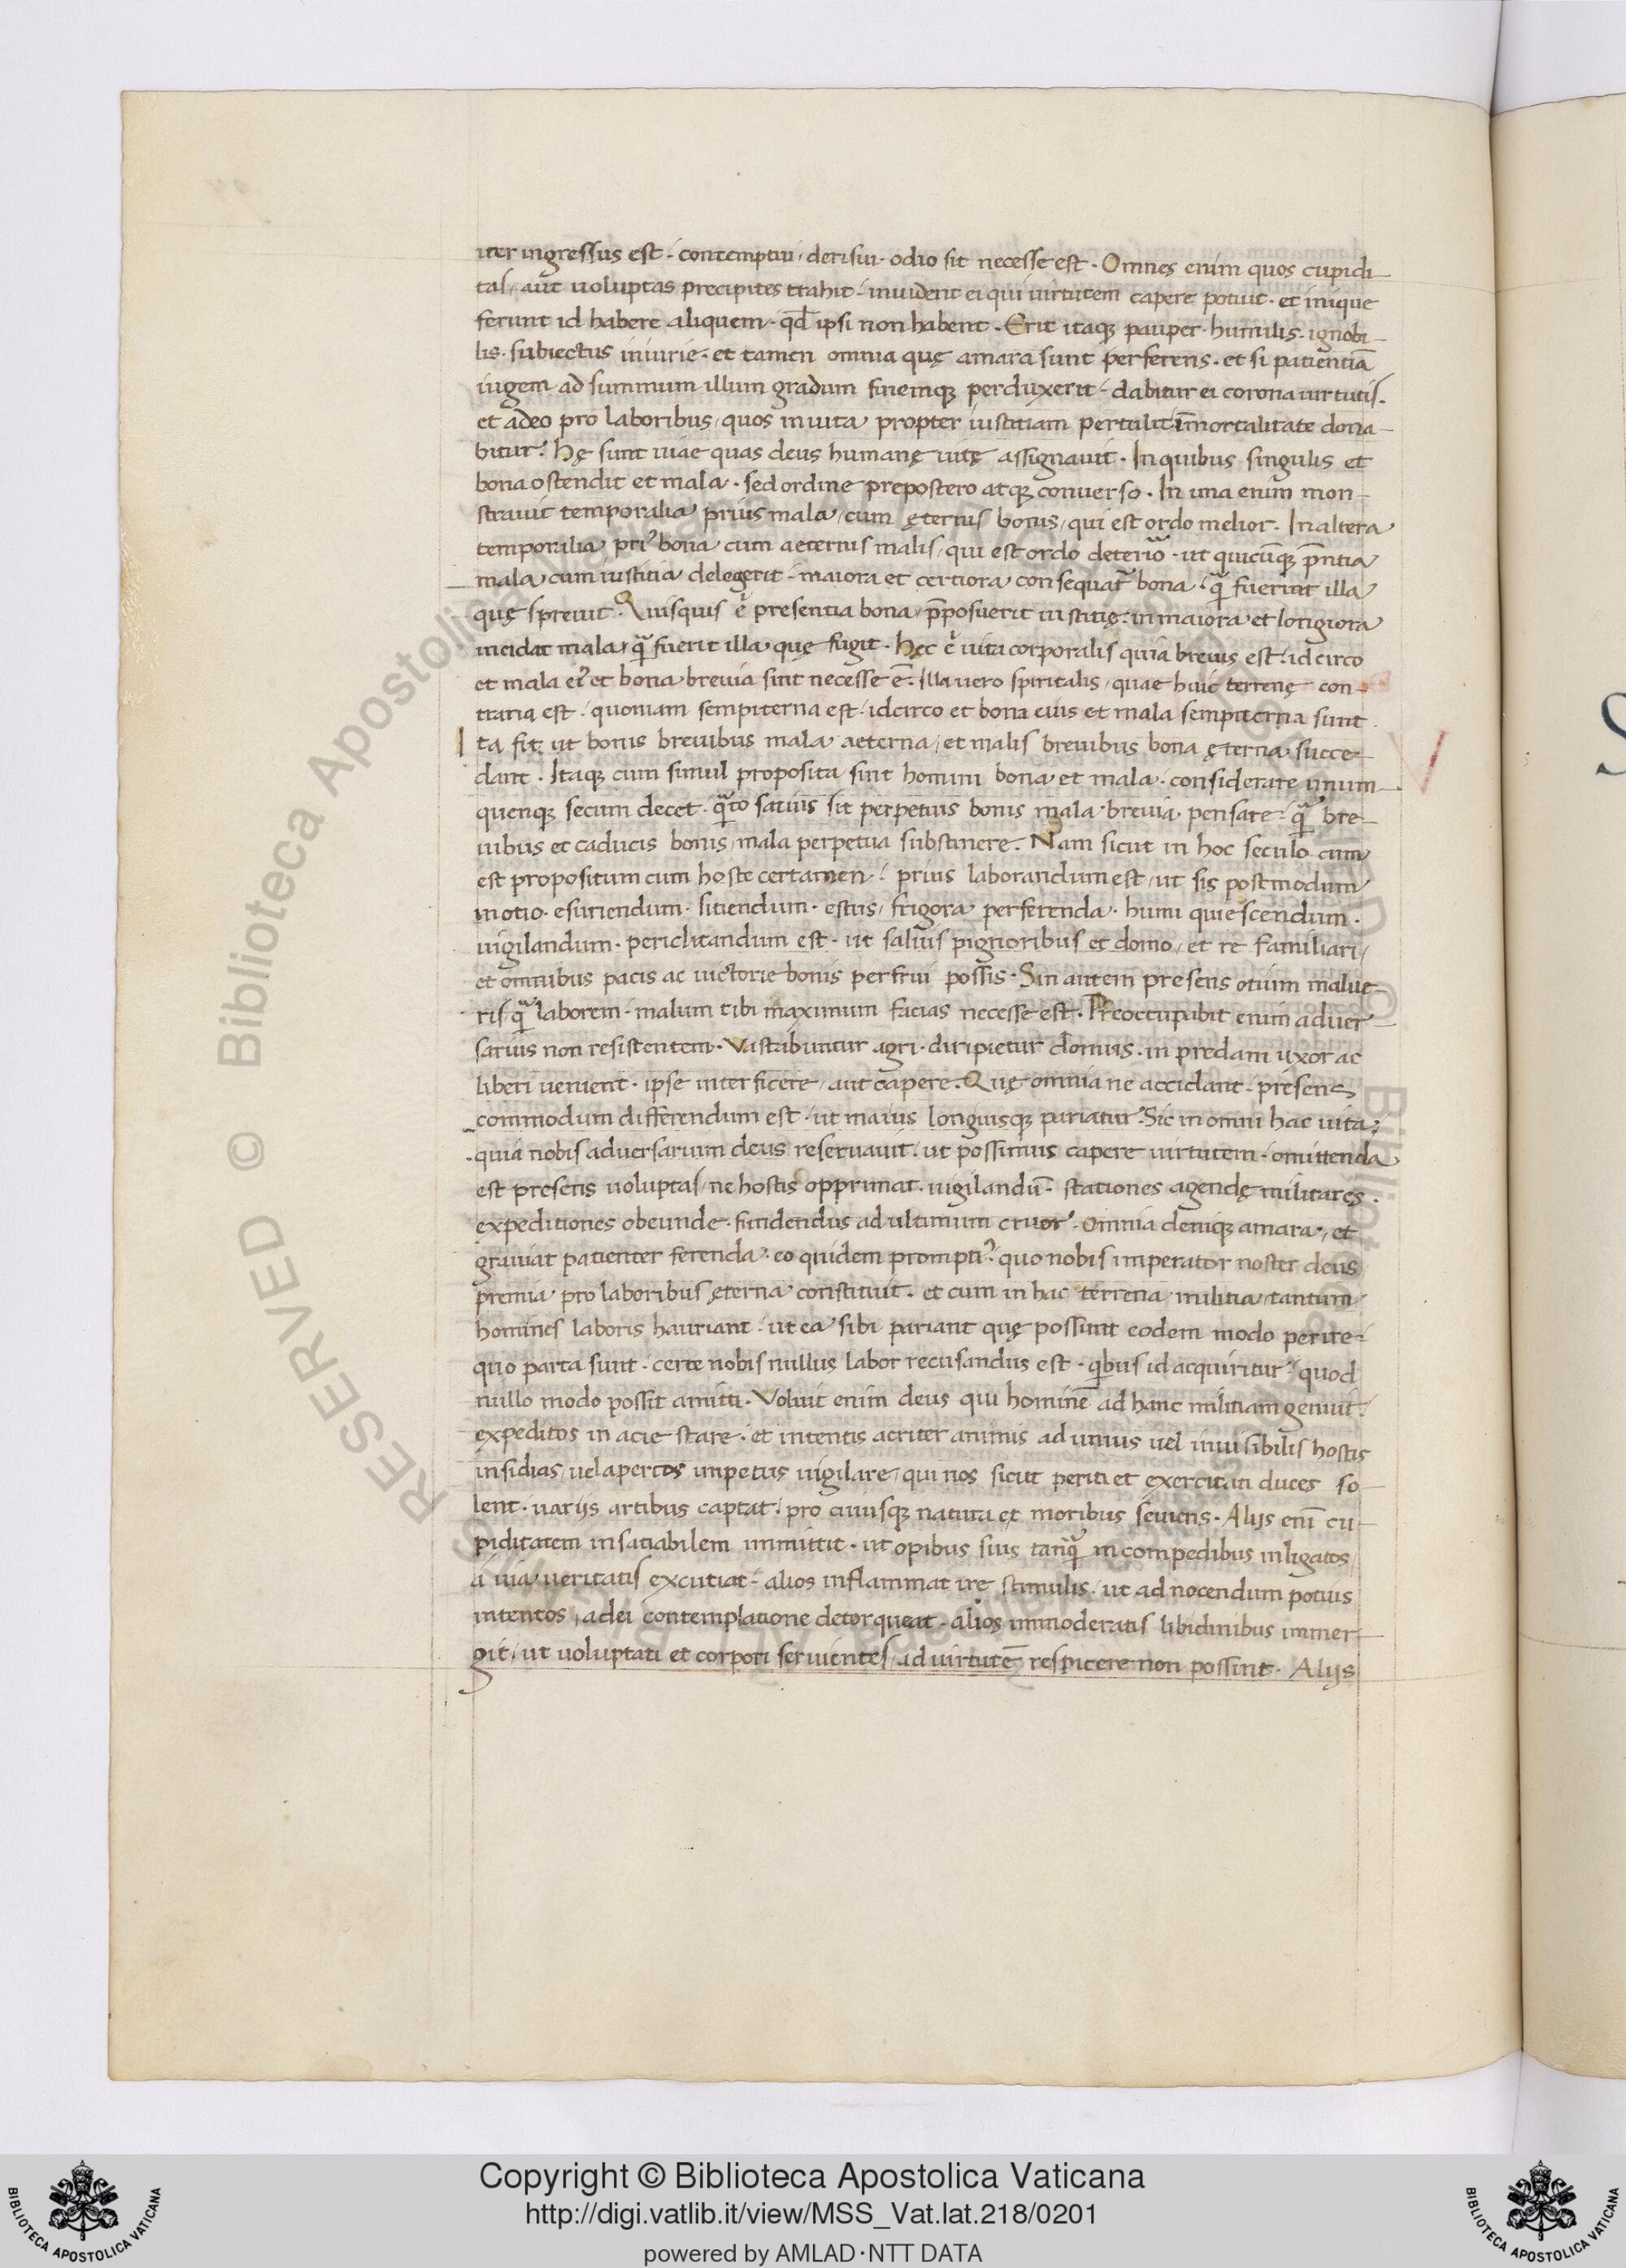 iter ingressus est · contemptui / derisui · odio sit necesse est · Omnes enim quos cupidi-
tas / aut uoluptas precipites trahit · inuident ei qui uirtutem capere potuit · et inique
ferunt id habere aliquem · qd̄ ipsi non habent · Erit itaqȝ pauper · humilis · ignobi-
lis · subiectus iniurie · et tamen omnia quę amara sunt perferens · et si patientiā
iugem ad summum illum gradum finemqȝ perduxerit · dabitur ei corona uirtutis ·
et adeo pro laboribus / quos in uita propter iustitiam pertulit īmortalitate dona-
bitur · Hę sunt uiae quas deus humanę uitę assignauit · In quibus singulis et
bona ostendit et mala · sed ordine prepostero atqȝ conuerso · In una enim mon-
strauit temporalia prius mala / cum ęternis bonis / qui est ordo melior · In altera
temporalia pri᾽ bona cum aeternis malis / qui est ordo deterio᷑ · ut quicūqȝ p̄ntia
mala cum iustitia delegerit · maiora et certiora consequat᷑ bona · q̄ fuerint illa
quę spreuit · Quisquis ė presentia bona / p̄posuerit iustitię · in maiora et longiora
incidat mala / q̄ fuerit illa quę fugit · Hęc ė uita corporalis quia breuis est · idcirco
et mala ei᾽ et bona breuia sint necesse ē · Illa uero spiritalis / quae huic terrenę con-
traria est · quoniam sempiterna est · idcirco et bona eius et mala sempiterna sunt ·
I ta fit ut bonis breuibus mala aeterna / et malis breuibus bona ęterna succe-
dant · Itaqȝ cum simul proposita sint homini bona et mala · considerare unum-
quenqȝ secum decet · q̄to satius sit perpetuis bonis mala breuia pensare · q̄ bre-
uibus et caducis bonis / mala perpetua substinere · Nam sicut in hoc seculo cum
est propositum cum hoste certamen · prius laborandum est / ut sis postmodum
in otio · esuriendum · sitiendum · estus / frigora perferenda · humi quiescendum ·
uigilandum · periclitandum est · ut saluis pignoribus et domo / et re familiari /
et omnibus pacis ac uictorie bonis perfrui possis · Sin autem presens otium malue-
ris / q̄ laborem · malum tibi maximum facias necesse est · Preoccupabit enim aduer-
sarius non resistentem · Vastabuntur agri · diripietur domus · in predam uxor ac
liberi uenient · ipse interficere / aut capere · Quę omnia ne accidant · presens
commodum differendum est · ut maius longiusqȝ pariatur · Sic in omni hac uita ·
quia nobis aduersarium deus reseruauit · ut possimus capere uirtutem · omittenda
est presens uoluptas / ne hostis opprimat · uigilandū · stationes agendę militares ·
expeditiones obeunde · fundendus ad ultimum cruor · omnia deniqȝ amara / et
grauiat patienter ferenda · eo quidem prompti᾽ quo nobis imperator noster deus
premia pro laboribus ęterna constituit · et cum in hac terrena militia tantum
homines laboris hauriant · ut ea sibi pariant quę possunt eodem modo perire ·
quo parta sunt · certe nobis nullus labor recusandus est · qbus id acquiritur / quod
nullo modo possit amitti · Voluit enim deus qui hominē ad hanc militiam genuit ·
expeditos in acie stare · et intentis acriter animis ad unius uel inuisibilis hostis
insidias / uel apertos impetus uigilare / qui nos sicut periti et exercitati duces so-
lent · uarijs artibus captat · pro cuiusqȝ natura et moribus seuiens · Alijs enī cu-
piditatem insatiabilem immittit · ut opibus suis tanq̄ in compedibus inligatos /
a uia ueritatis excutiat · alios inflammat ire stimulis / ut ad nocendum potius
intentos / a dei contemplatione detorqueat · alios immoderatis libidinibus immer-
git / ut uoluptati et corpori seruientes / ad uirtutē respicere non possint · Alijs
RESERVED © Biblioteca Apostolica Vaticana
Copyright © Biblioteca Apostolica Vaticana
http://digi.vatlib.it/view/MSS_Vat.lat.218/0201
powered by AMLAD·NTT DATA
BIBLIOTECA APOSTOLICA VATICANA
BIBLIOTECA APOSTOLICA VATICANA